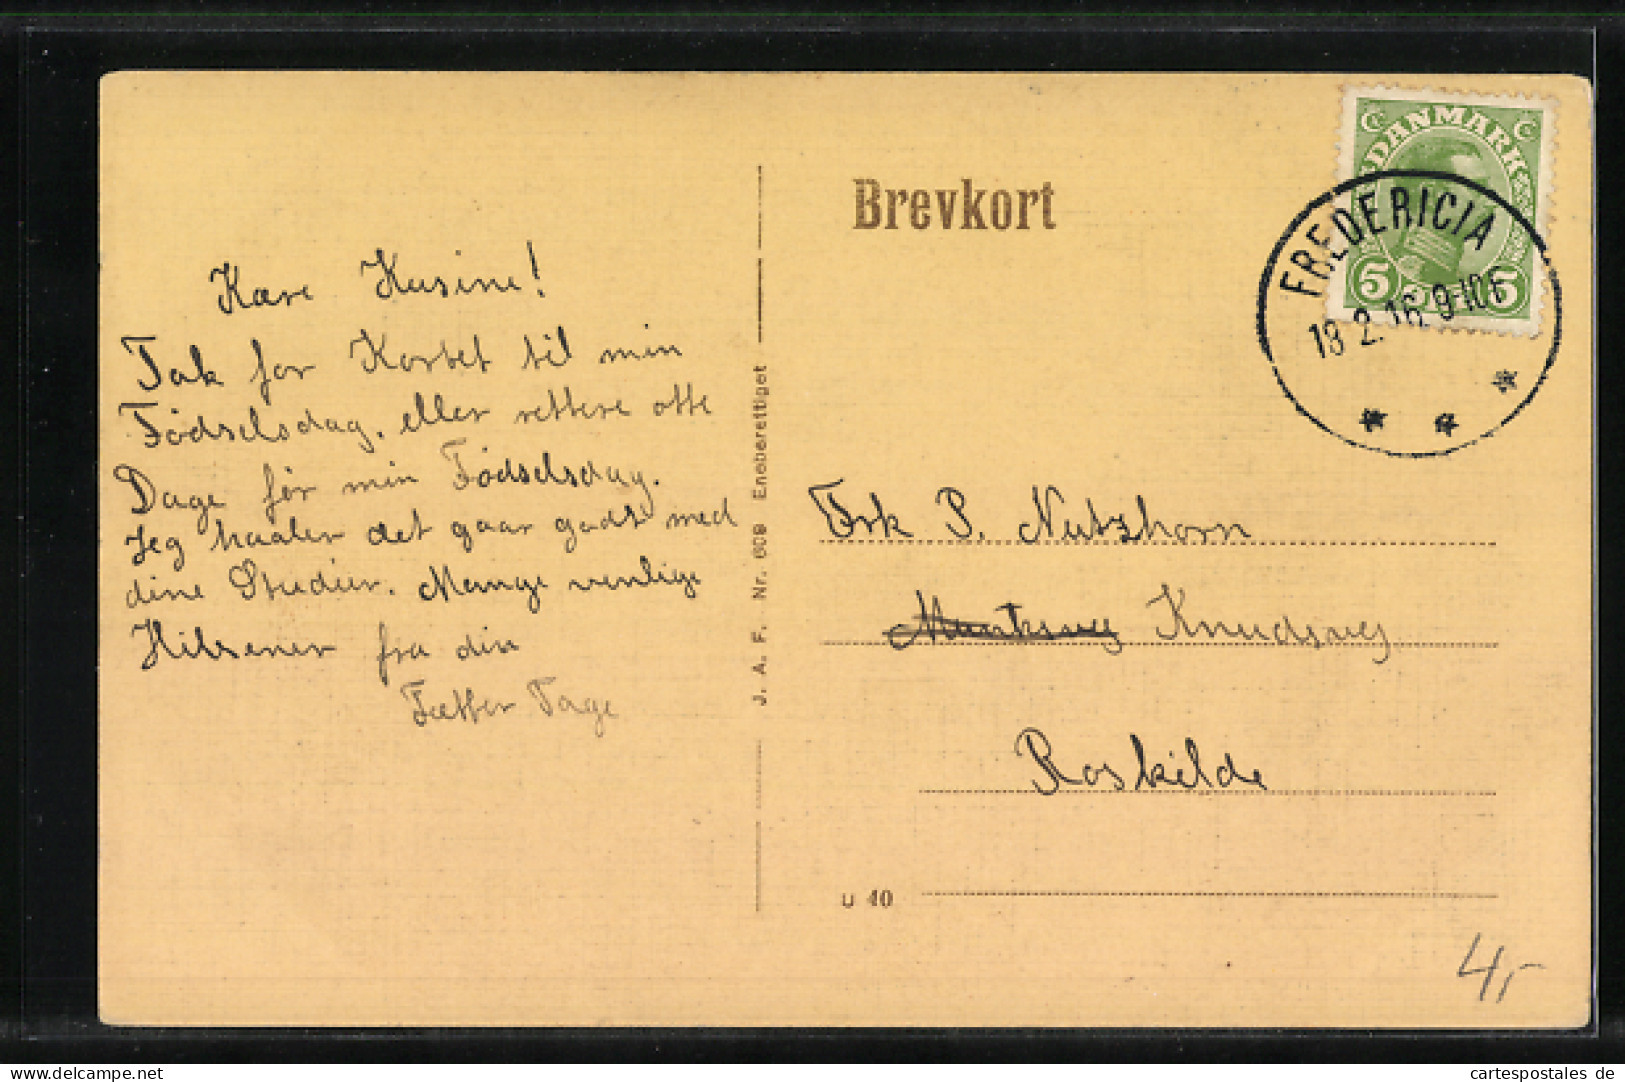 Brevkort
DANMARK
5 5
FREDERICIA
18 2. 16. 9-10 F
Kære Kusine!
Tak for Kortet til min
Fødselsdag, eller rettere otte
Dage før min Fødselsdag.
Jeg haaber det gaar godt med
dine Studier. Mange venlige
Hilsener fra din
Fætter Tage
J. A. F. Nr. 609 Eneberettiget
Frk P. Nutzhorn
Knudsvej
Roskilde
U 40
4,-
www.cartespostales.de
cartespostales de